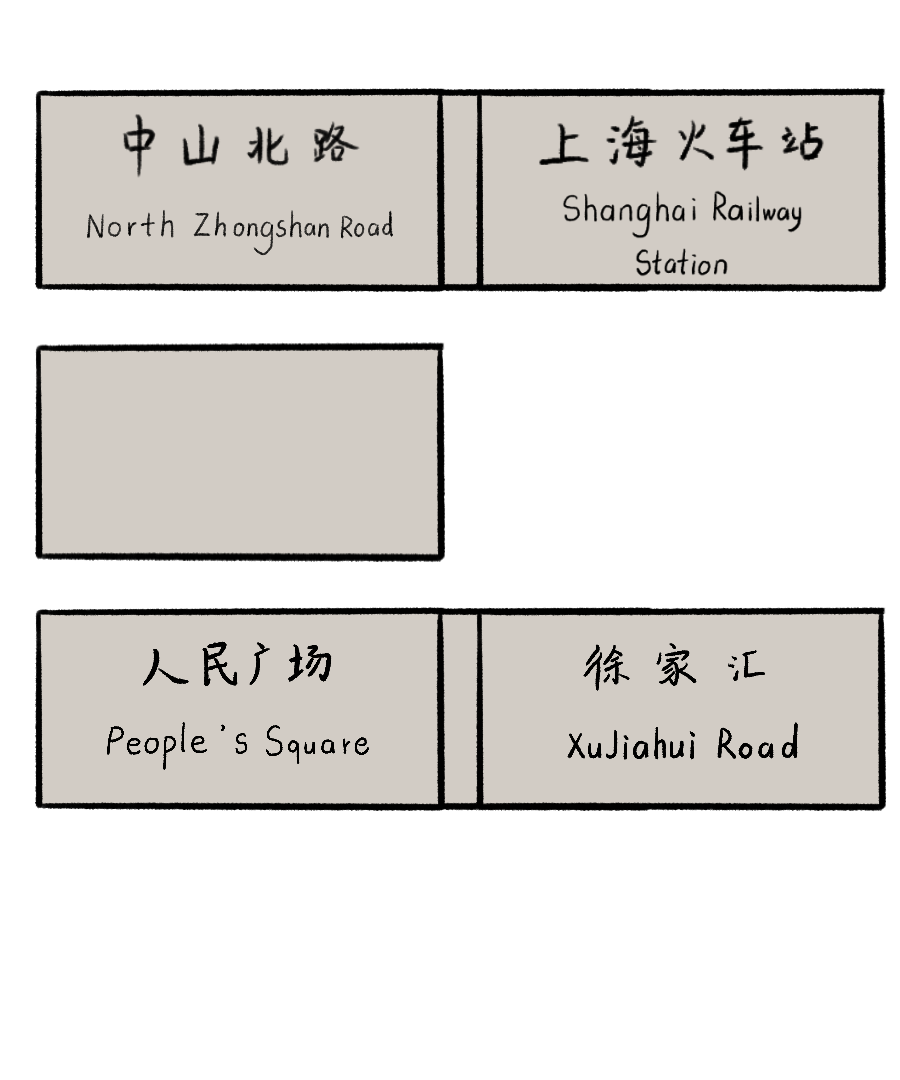 中山北路
North Zhongshan Road
上海火车站
Shanghai Railway
Station
人民广场
People's Square
徐家汇
XuJiahui Road